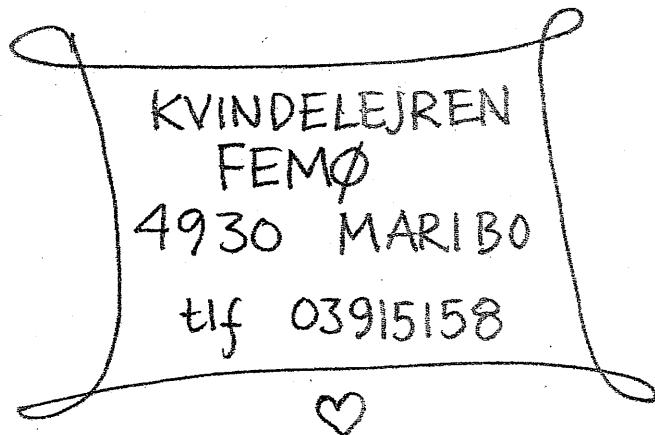 KVINDELEJREN
FEMØ
4930 MARIBO
tlf 03915158